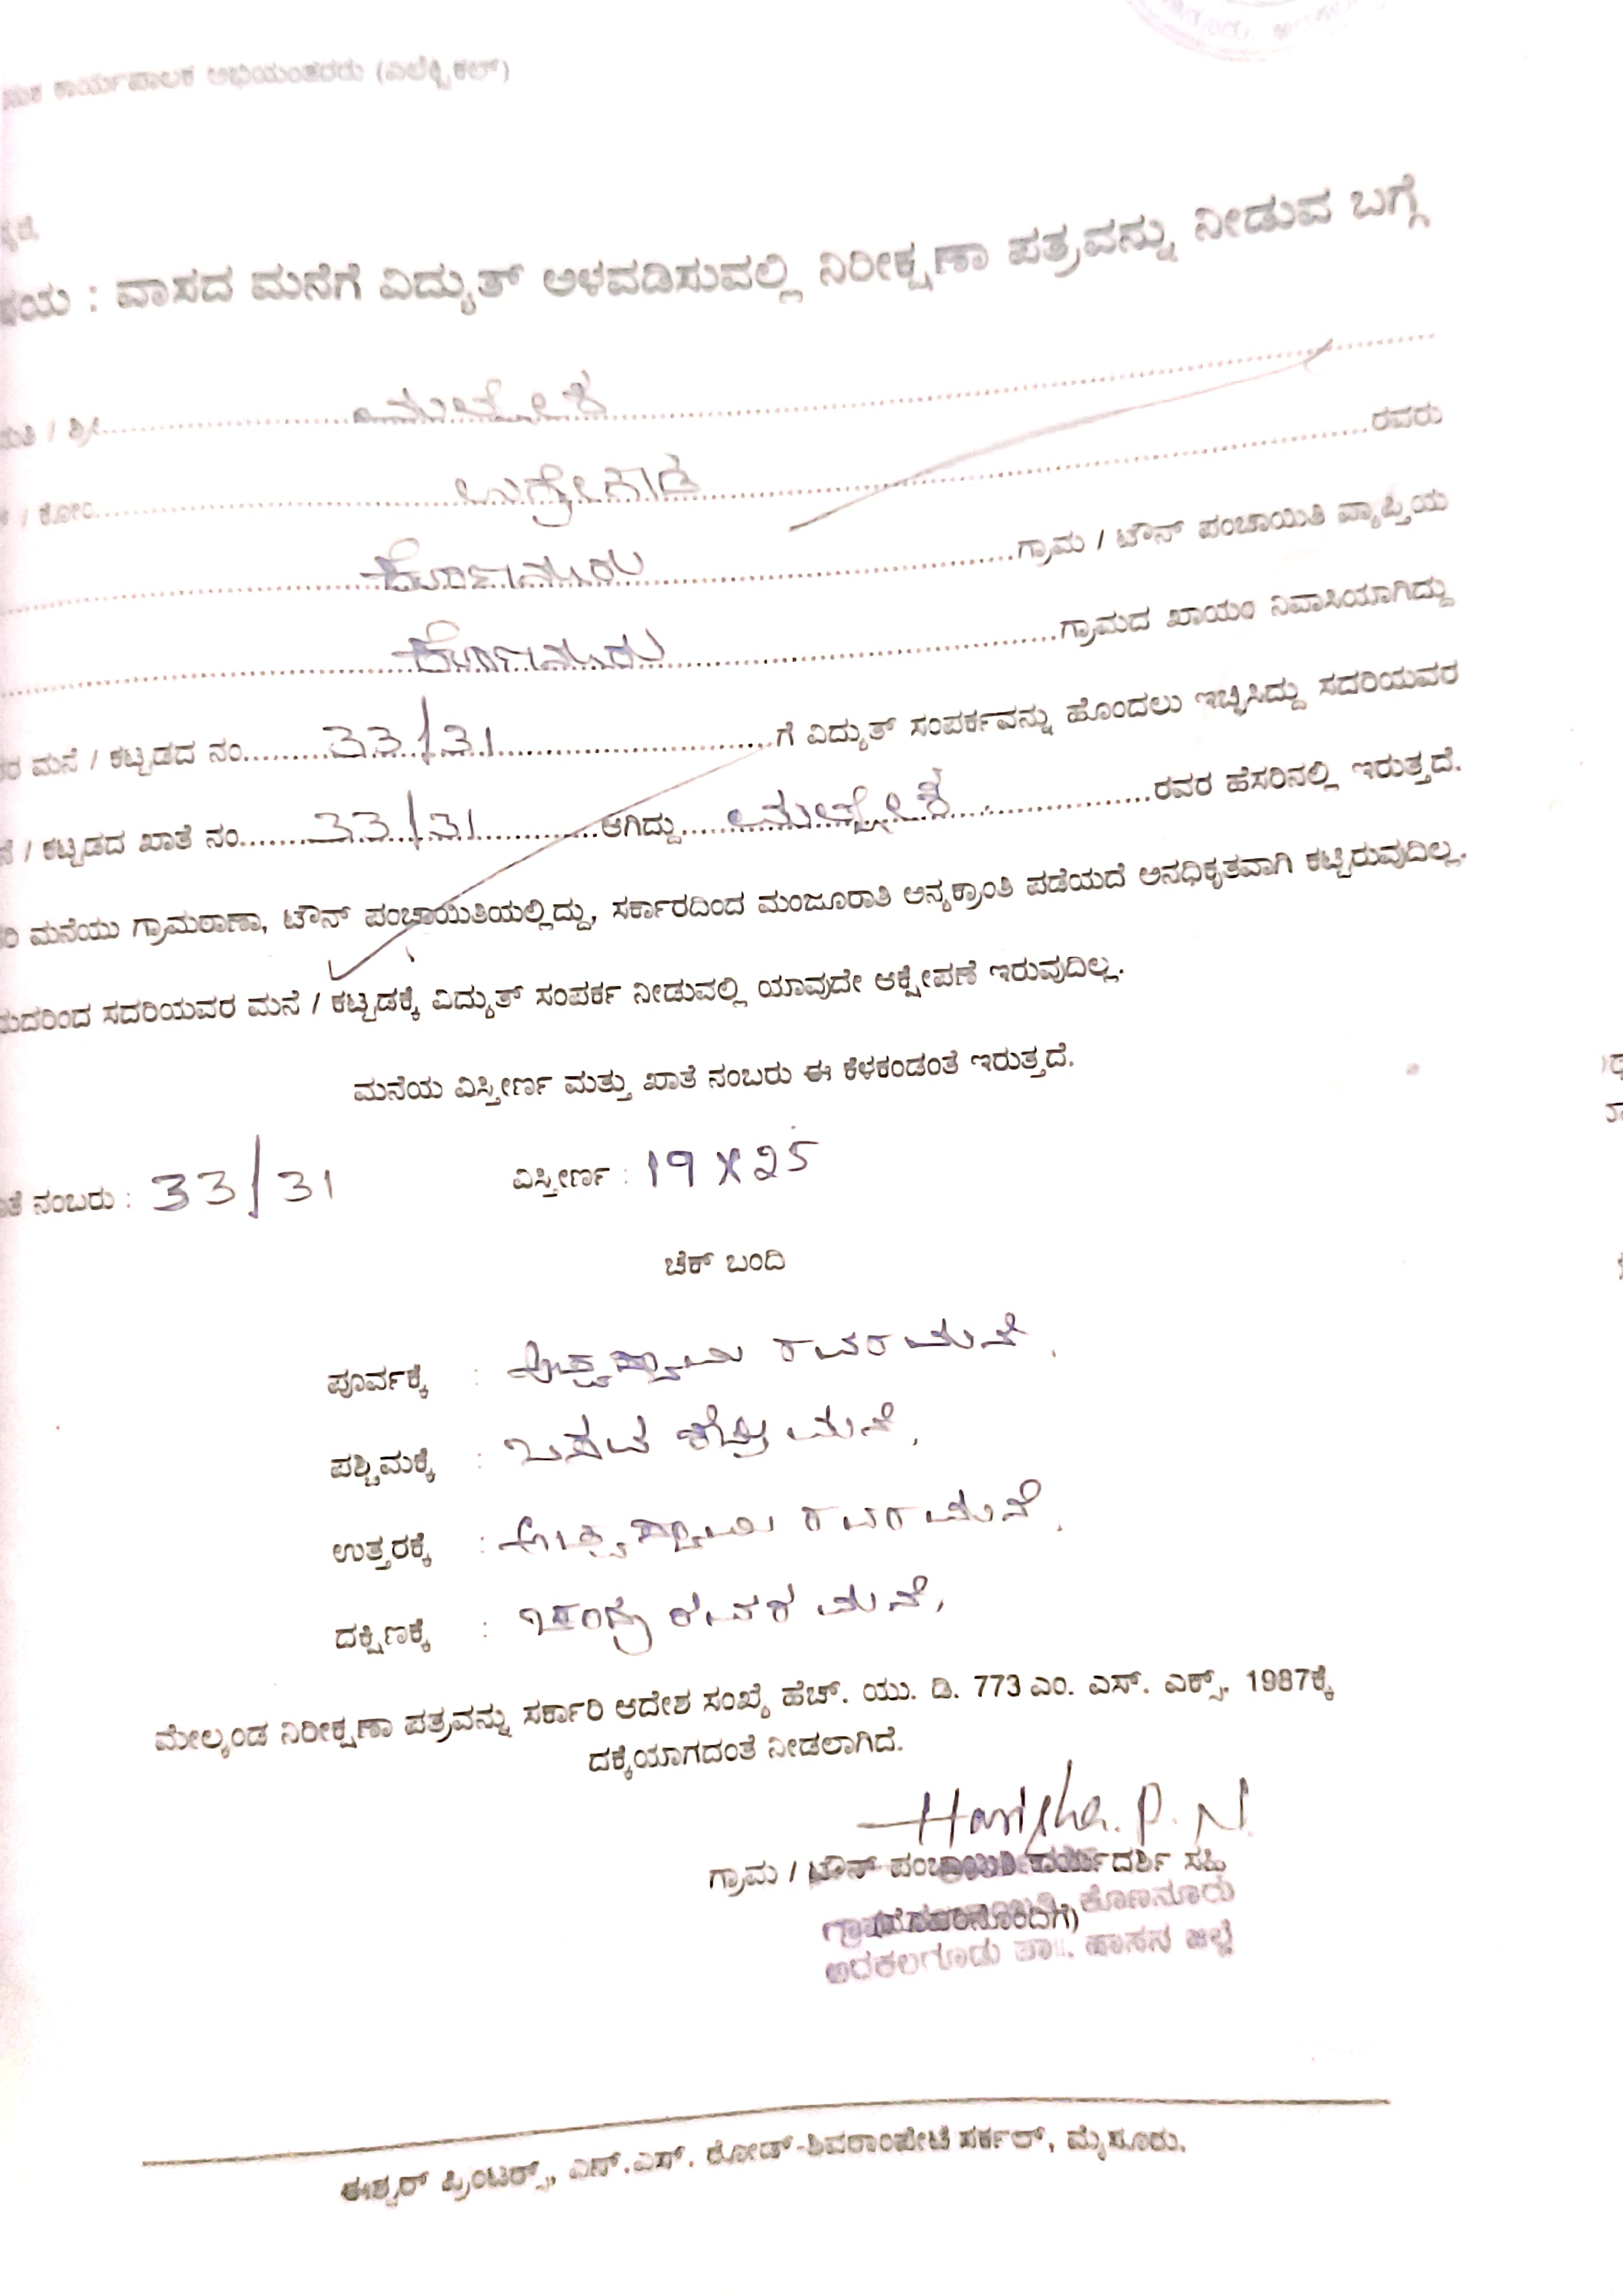 ಕಾರ್ಯಪಾಲಕ ಅಭಿಯಂತರರು (ಎಲೆಕ್ಟ್ರಿಕಲ್)
: ವಾಸದ ಮನೆಗೆ ವಿದ್ಯುತ್ ಅಳವಡಿಸುವಲ್ಲಿ ನಿರೀಕ್ಷಣಾ ಪತ್ರವನ್ನು ನೀಡುವ ಬಗ್ಗೆ
/ ಶ್ರೀ
/ ಕೋಂ ರವರು
ಕೊಣನೂರು ಗ್ರಾಮ / ಟೌನ್ ಪಂಚಾಯಿತಿ ವ್ಯಾಪ್ತಿಯ
ಕೊಣನೂರು ಗ್ರಾಮದ ಖಾಯಂ ನಿವಾಸಿಯಾಗಿದ್ದು
ಮನೆ / ಕಟ್ಟಡದ ನಂ. 33/31 ಗೆ ವಿದ್ಯುತ್ ಸಂಪರ್ಕವನ್ನು ಹೊಂದಲು ಇಚ್ಛಿಸಿದ್ದು ಸದರಿಯವರ
/ ಕಟ್ಟಡದ ಖಾತೆ ನಂ. 33/31 ಆಗಿದ್ದು ರವರ ಹೆಸರಿನಲ್ಲಿ ಇರುತ್ತದೆ.
ಮನೆಯು ಗ್ರಾಮಠಾಣಾ, ಟೌನ್ ಪಂಚಾಯಿತಿಯಲ್ಲಿದ್ದು, ಸರ್ಕಾರದಿಂದ ಮಂಜೂರಾತಿ ಅನ್ಯಕ್ರಾಂತಿ ಪಡೆಯದೆ ಅನಧಿಕೃತವಾಗಿ ಕಟ್ಟಿರುವುದಿಲ್ಲ.
ಸದರಿಯವರ ಮನೆ / ಕಟ್ಟಡಕ್ಕೆ ವಿದ್ಯುತ್ ಸಂಪರ್ಕ ನೀಡುವಲ್ಲಿ ಯಾವುದೇ ಆಕ್ಷೇಪಣೆ ಇರುವುದಿಲ್ಲ.
ಮನೆಯ ವಿಸ್ತೀರ್ಣ ಮತ್ತು ಖಾತೆ ನಂಬರು ಈ ಕೆಳಕಂಡಂತೆ ಇರುತ್ತದೆ.
ನಂಬರು : 33/31 ವಿಸ್ತೀರ್ಣ : 19 X 25
ಚೆಕ್ ಬಂದಿ
ಪೂರ್ವಕ್ಕೆ : ರವರ ಮನೆ.
ಪಶ್ಚಿಮಕ್ಕೆ : ಬಸವ ಶೆಟ್ರು ಮನೆ.
ಉತ್ತರಕ್ಕೆ : ರವರ ಮನೆ.
ದಕ್ಷಿಣಕ್ಕೆ : ಚಂದ್ರು ರವರ ಮನೆ.
ಮೇಲ್ಕಂಡ ನಿರೀಕ್ಷಣಾ ಪತ್ರವನ್ನು ಸರ್ಕಾರಿ ಆದೇಶ ಸಂಖ್ಯೆ ಹೆಚ್. ಯು. ಡಿ. 773 ಎಂ. ಎಸ್. ಎಕ್ಸ್. 1987ಕ್ಕೆ
ದಕ್ಕೆಯಾಗದಂತೆ ನೀಡಲಾಗಿದೆ.
Harisha. P. N.
ಗ್ರಾಮ / ಟೌನ್ ಪಂಚಾಯಿತಿ ಕಾರ್ಯದರ್ಶಿ ಸಹಿ
ಕೊಣನೂರು
ಅರಕಲಗೂಡು ತಾ॥. ಹಾಸನ ಜಿಲ್ಲೆ
ಈಶ್ವರ್ ಪ್ರಿಂಟರ್ಸ್, ಎನ್.ಎಸ್. ರೋಡ್-ಶಿವರಾಂಪೇಟೆ ಸರ್ಕಲ್, ಮೈಸೂರು.